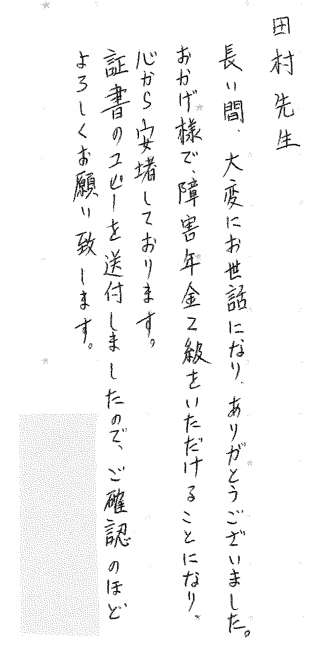 田村先生
長い間、大変にお世話になり、ありがとうございました。
おかげ様で、障害年金2級をいただけることになり、
心から安堵しております。
証書のコピーを送付しましたので、ご確認のほど
よろしくお願い致します。